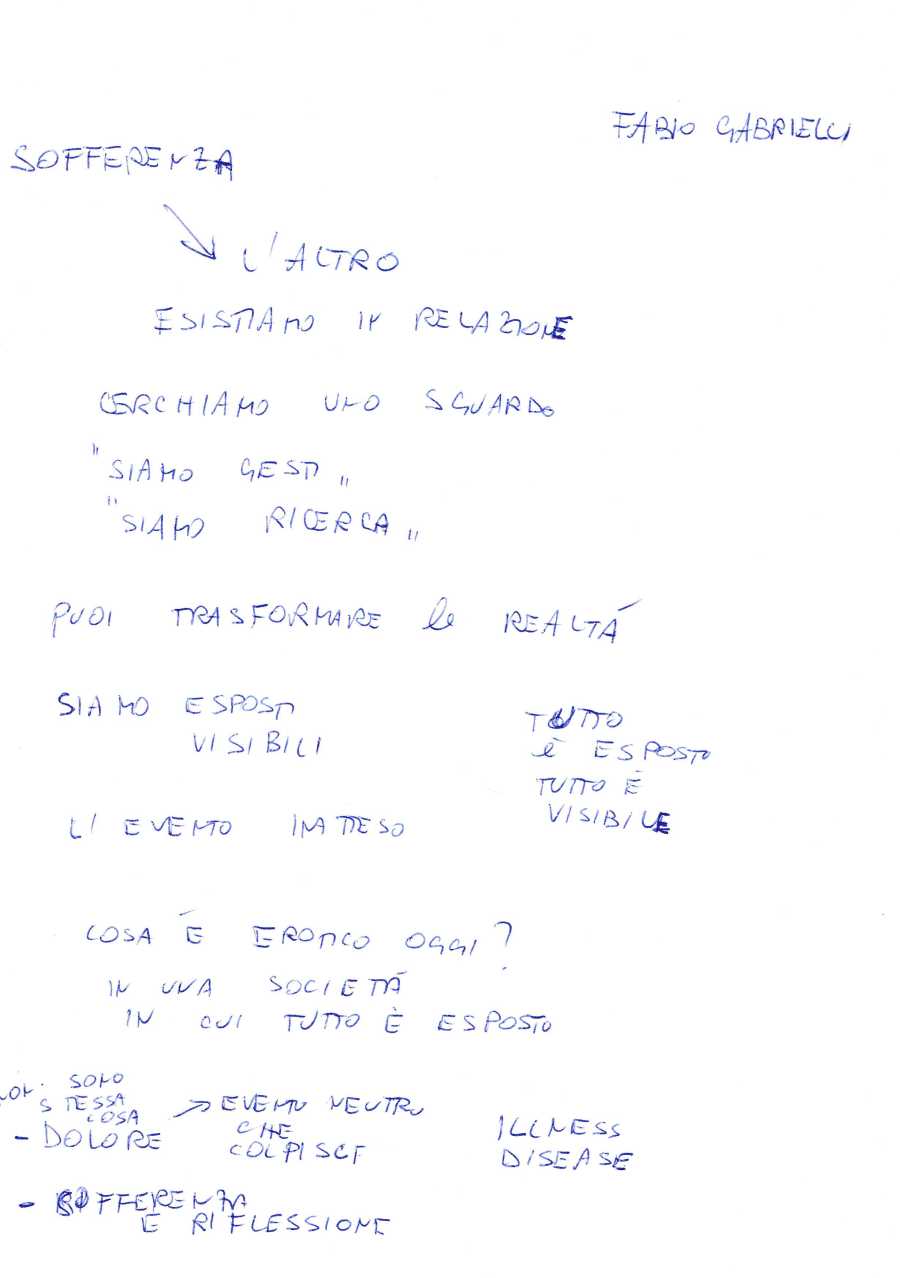 FABIO GABRIELLI
SOFFERENZA
L'ALTRO
ESISTIAMO IN RELAZIONE
CERCHIAMO UNO SGUARDO
"SIAMO GESTI"
"SIAMO RICERCA"
PUOI TRASFORMARE la REALTÁ
SIAMO ESPOSTI
VISIBILI
TUTTO
è ESPOSTO
TUTTO È
VISIBILE
L'EVENTO INATTESO
COSA É EROTICO OGGI?
IN UNA SOCIETÁ
IN CUI TUTTO È ESPOSTO
NON SONO
STESSA
COSA
- DOLORE → EVENTO NEUTRO
CHE
COLPISCE
ILLNESS
DISEASE
- SOFFERENZA
È RIFLESSIONE